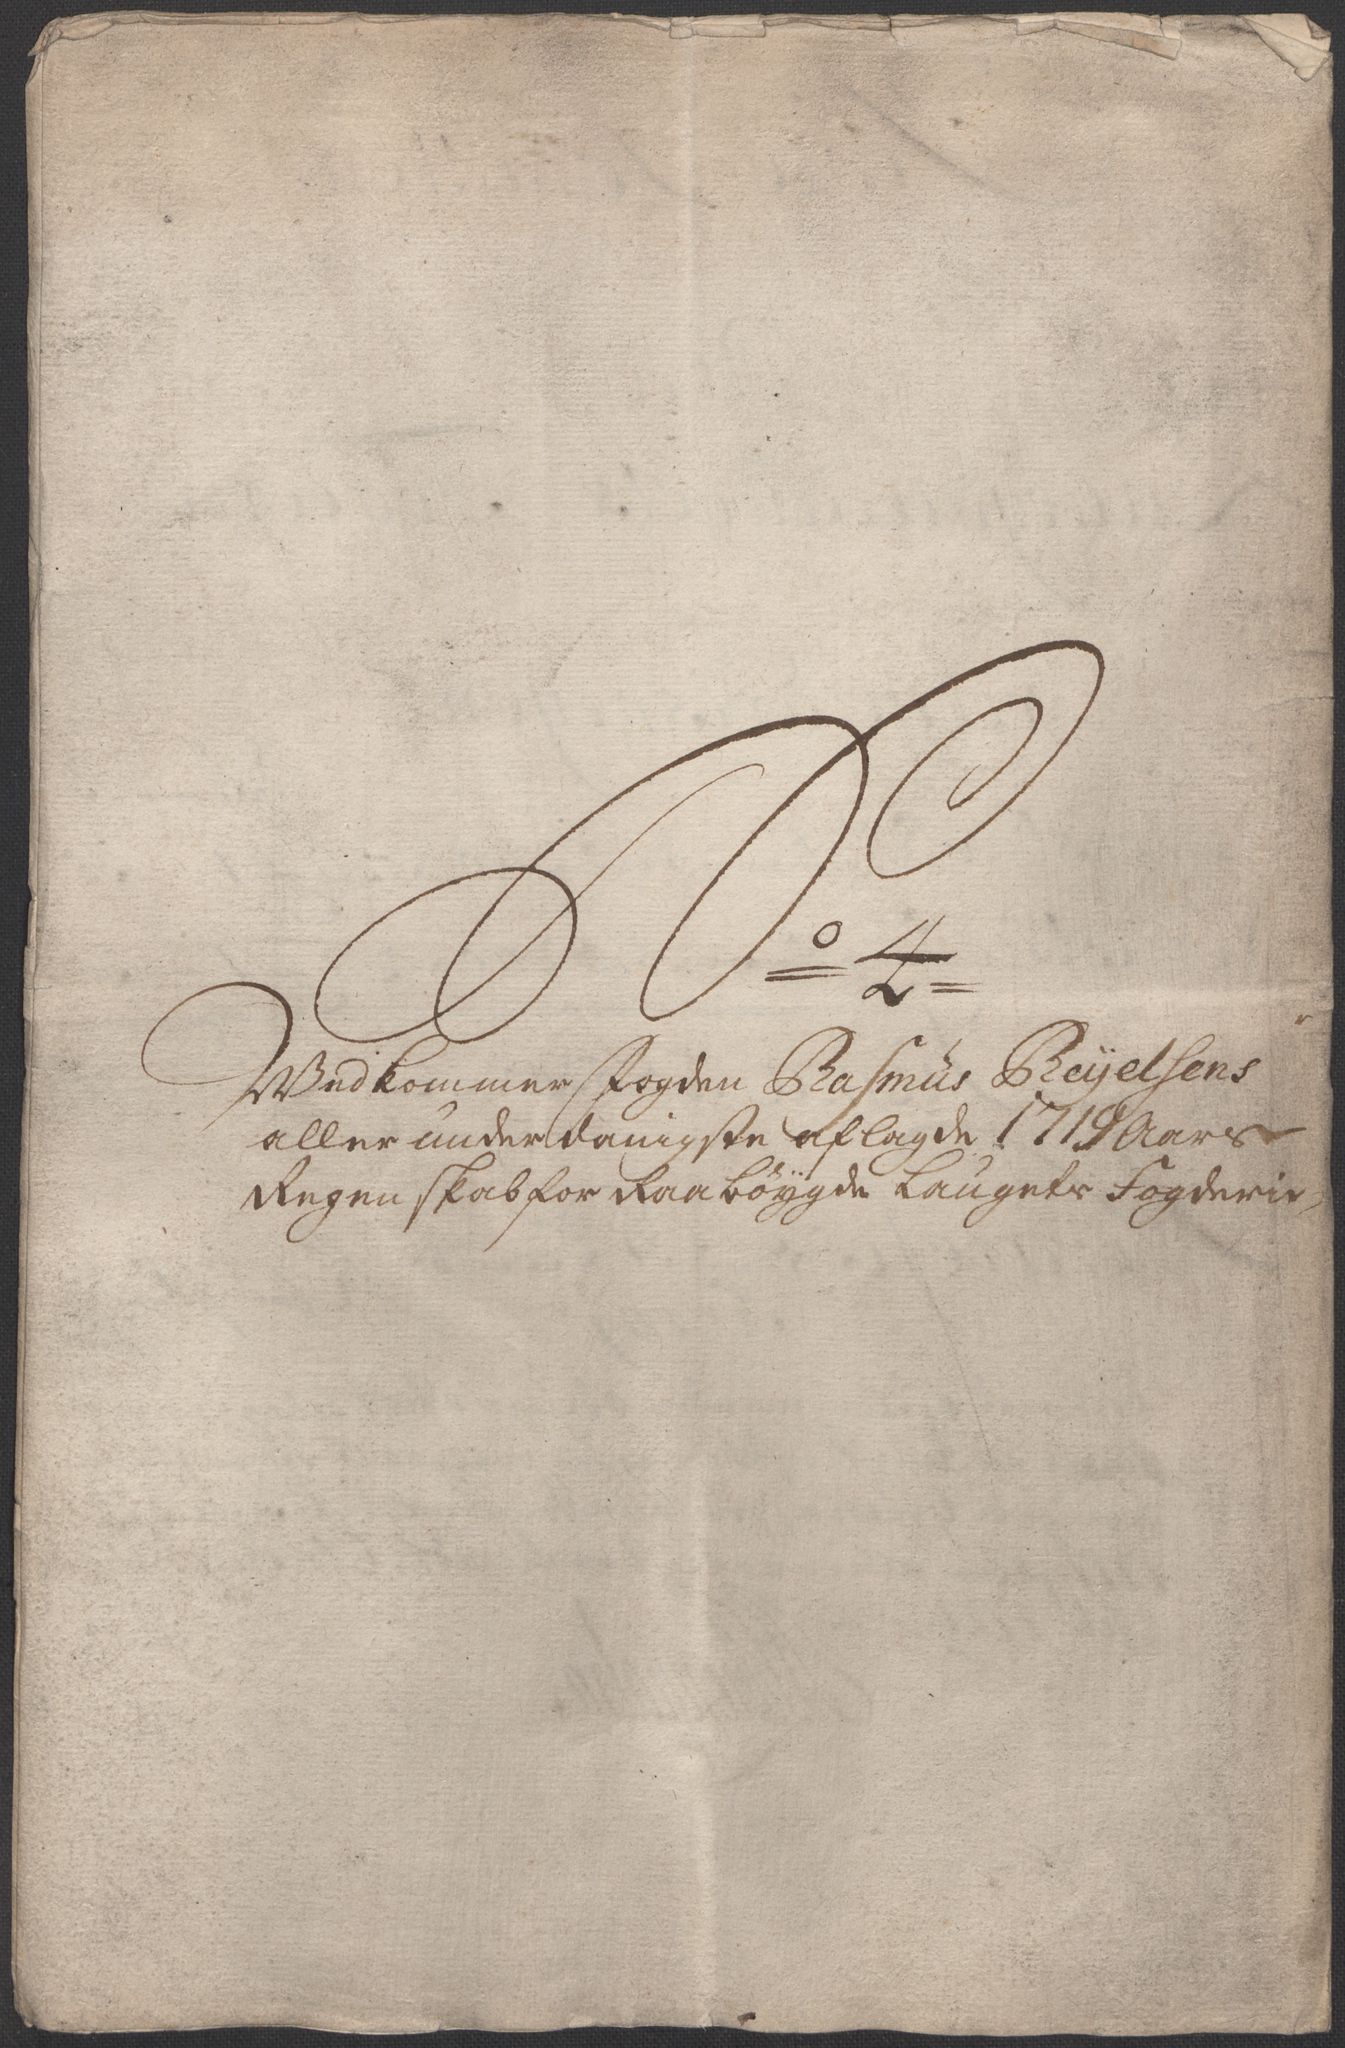 No 4
Vedkommer Fogden Rasmus Reÿelsens
aller underdanigste aflagde 1719 Aars
Regenskab for Raabøygde Laugets Fogderie,